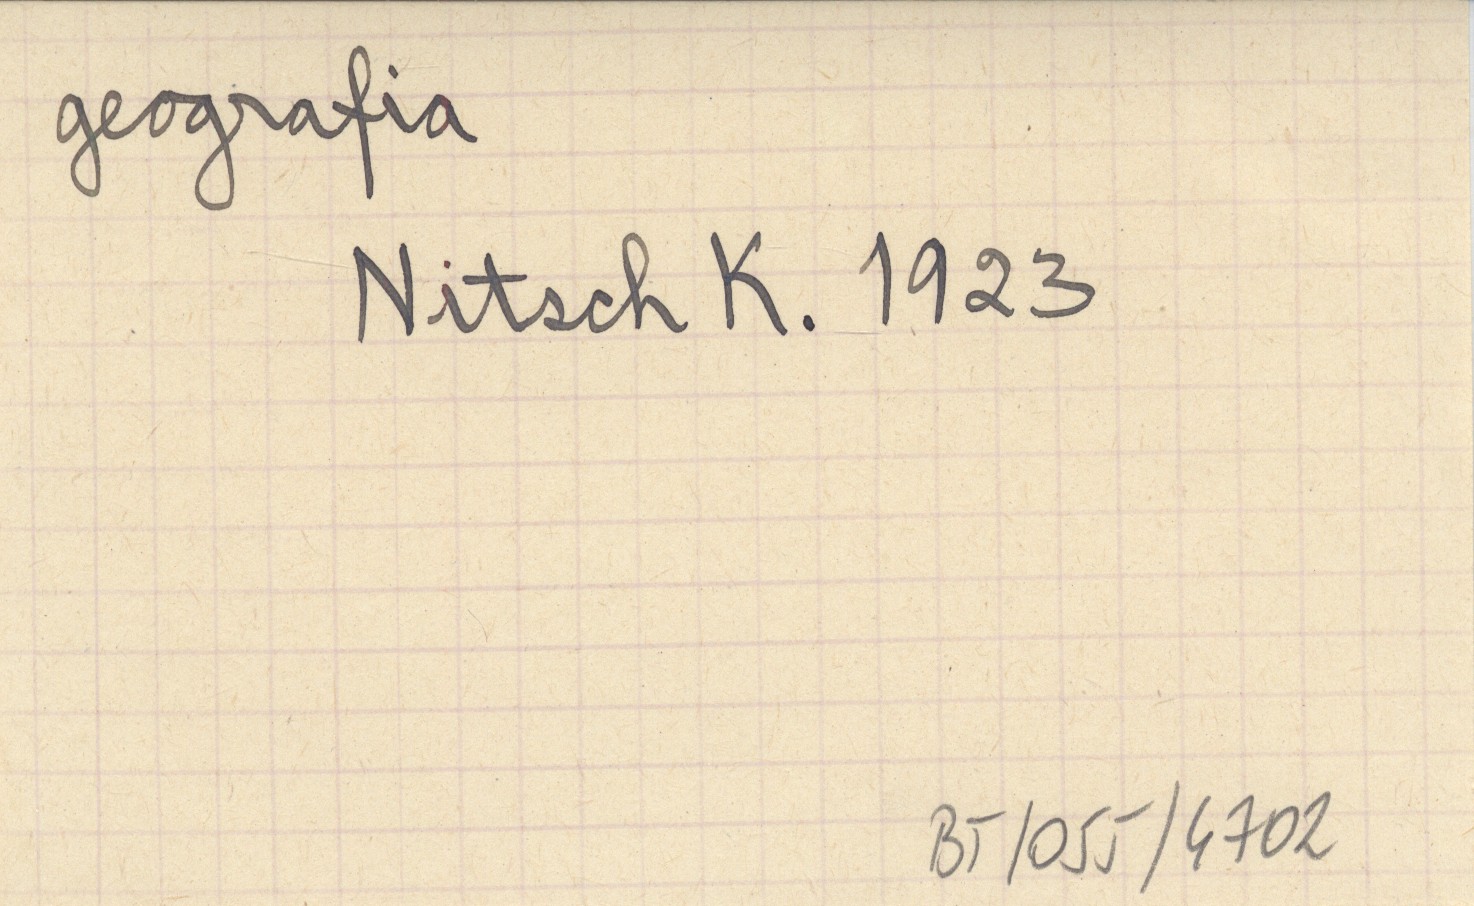 geografia
Nitsch K. 1923
BT/055/4702